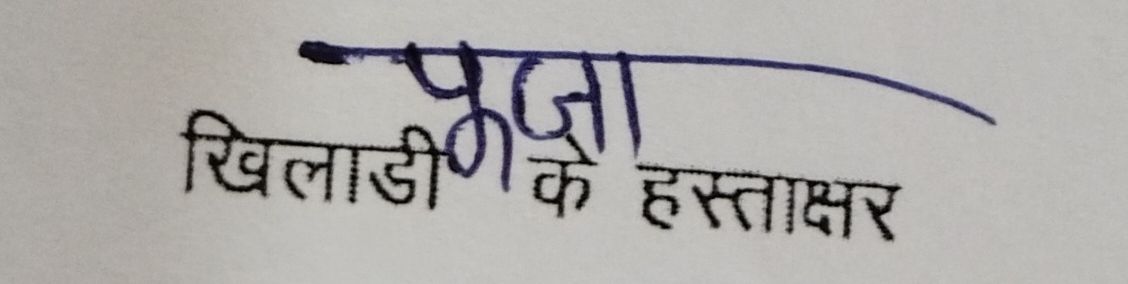 पूजा
खिलाडी के हस्ताक्षर